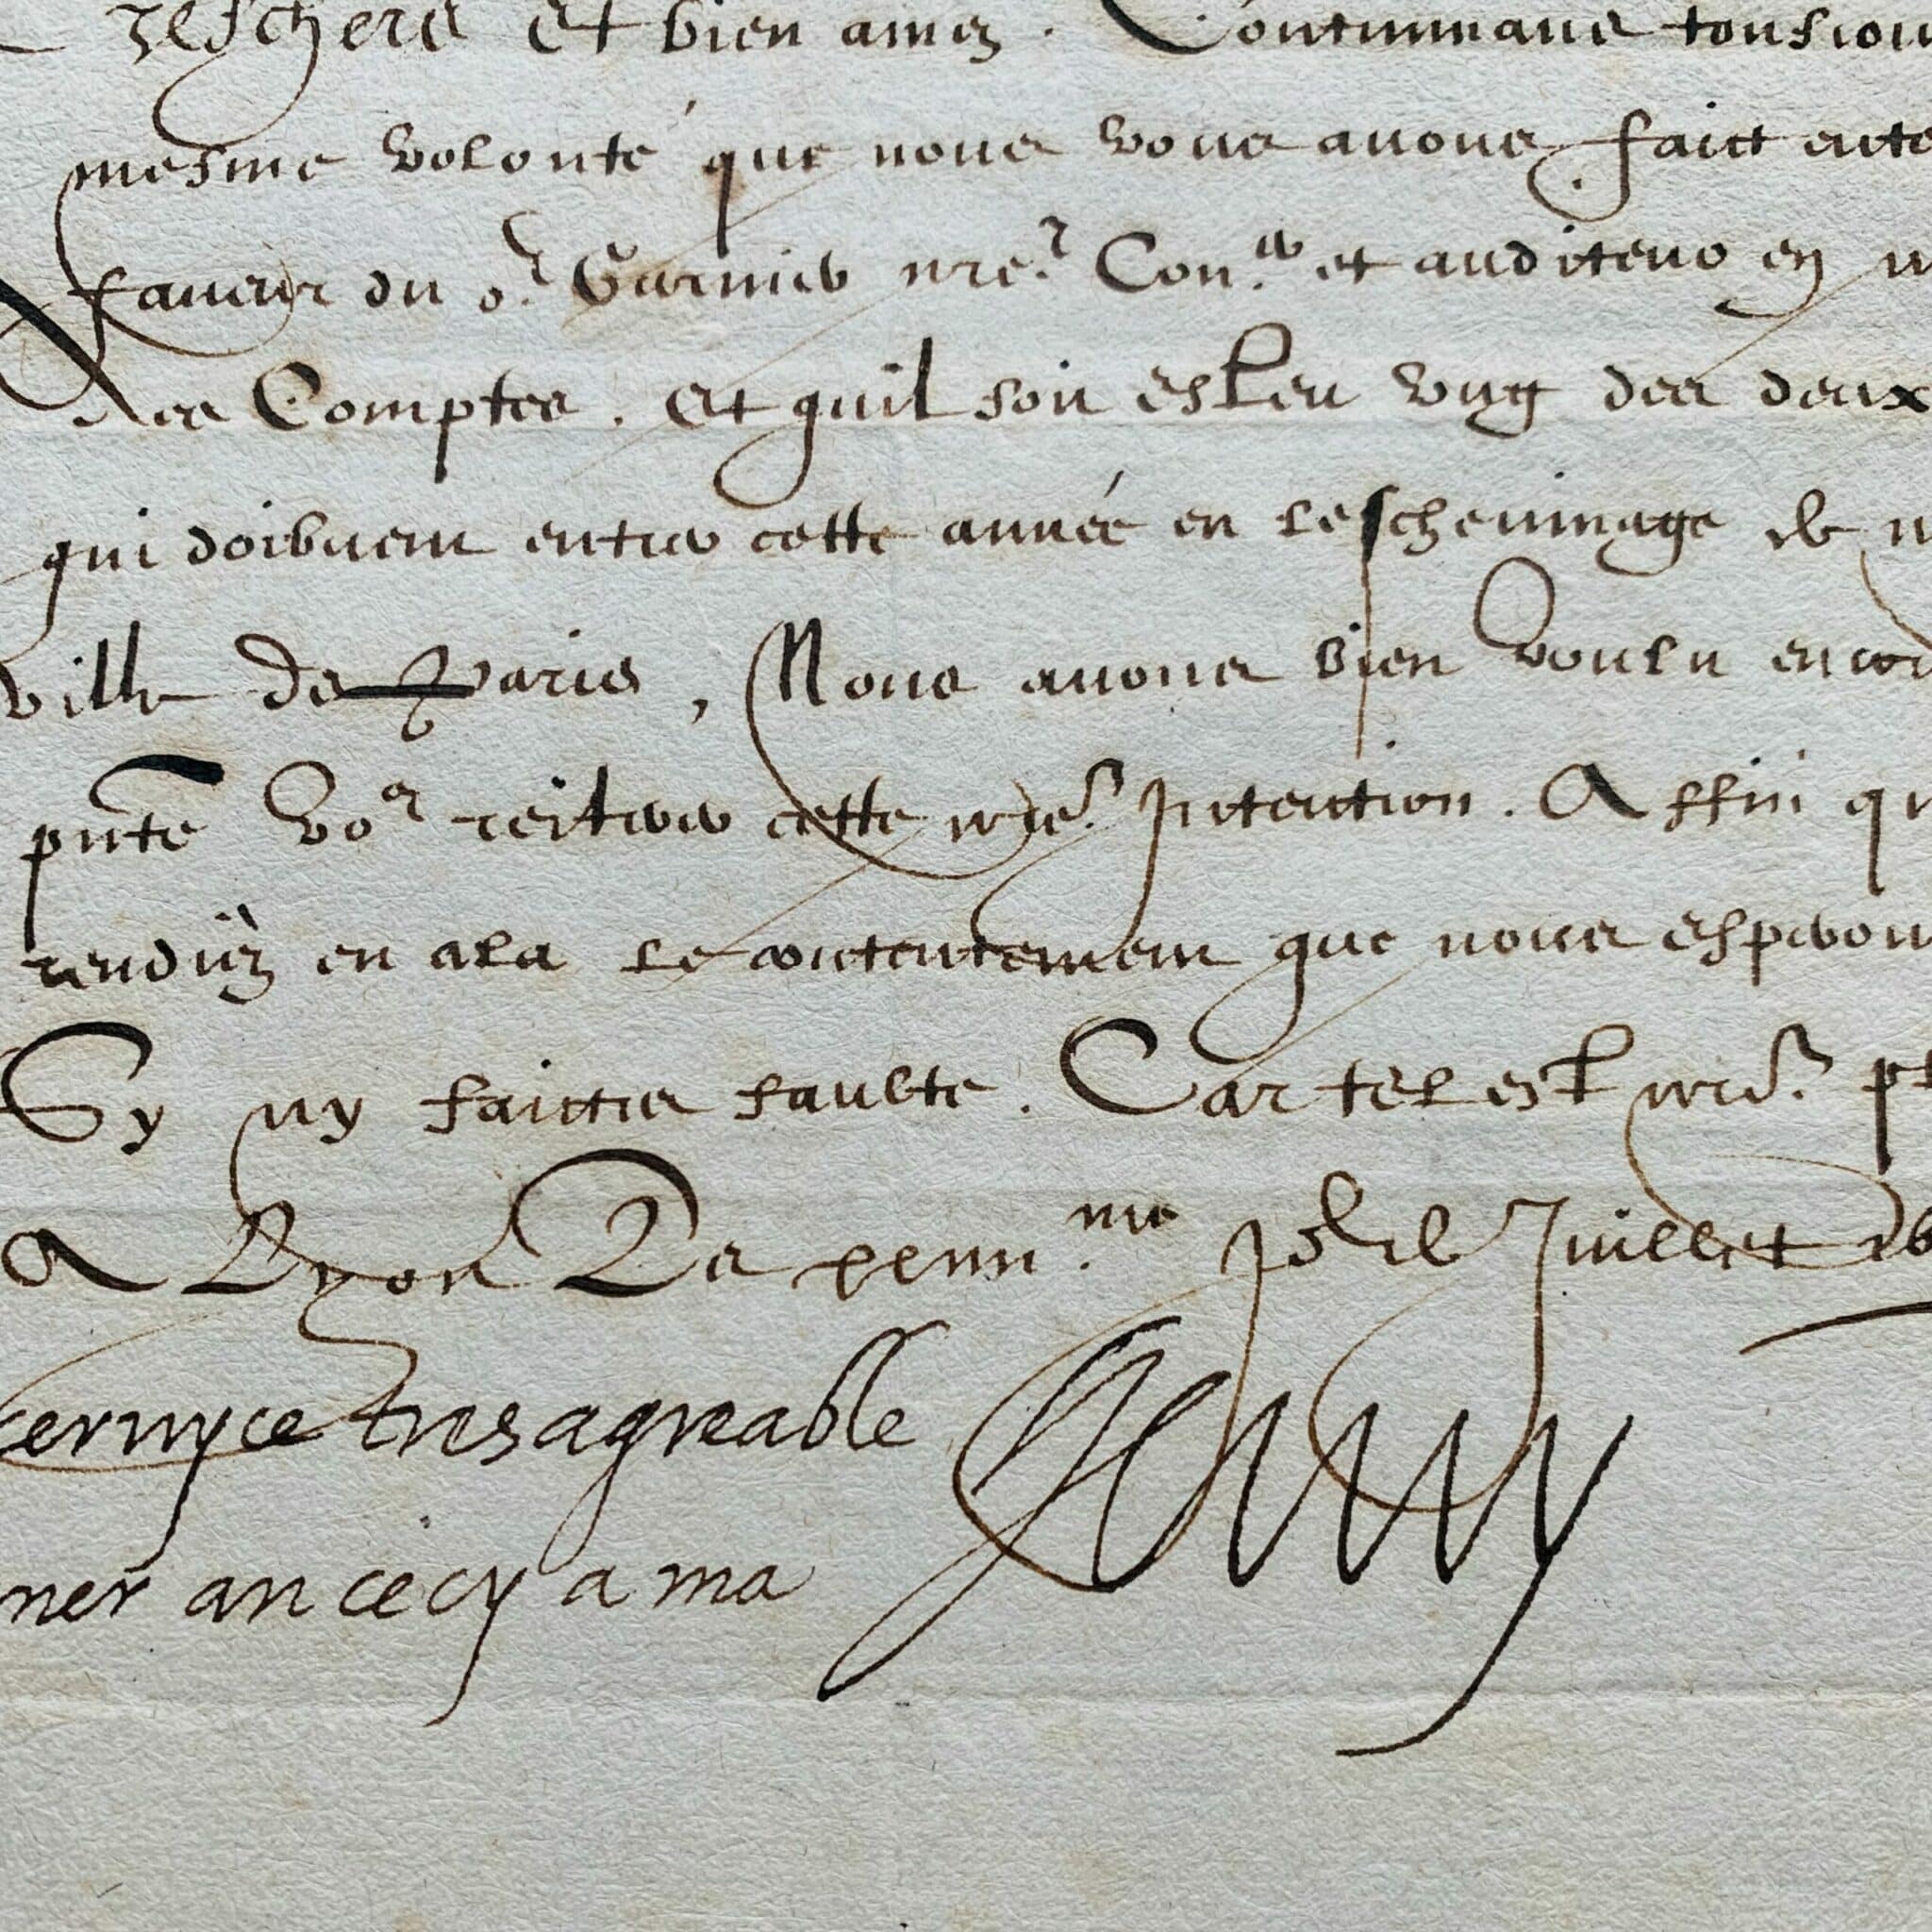 Treschers et bien amez. Continuans tousiou
mesme volonté que nous vous auons faict ente
faueur du sr Garnier nre. Con.er et auditeur en n
des Comptes. Et quil soit esleu vng des deux
qui doibuent entrer cette année en lescheuinage de n
ville de Paris, Nous auons bien voulu encor
pnte vos reiterer cette nre. Intention. Affin qu
rendiéz en cela le contentement que nous esperons
Sy ny faictes faulte. Car tel est nre. pl
A Lyon Le me Jor de Juillet 16
seruyce tres agreable Henry
ner an cecy a ma